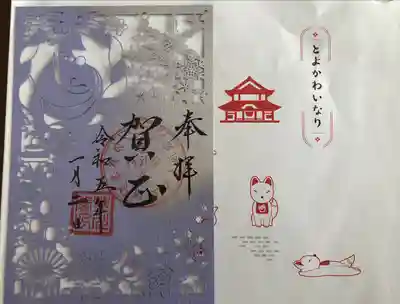 奉拝
賀正
令和五年
一月二日
とよかわいなり